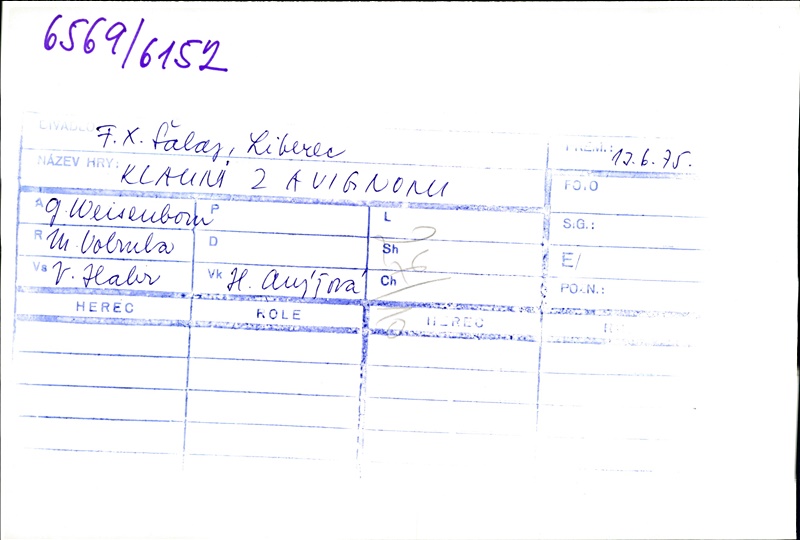 6569/6152
DIVADLO F. X. Šalda, Liberec
PREM.: 13.6.75.
NÁZEV HRY: KLAUNI Z AVIGNONU
FOTO
A G. Weisenborn P L S.G.:
R M. Vobruba D Sh E/
Vs V. Habr Vk H. Ch PO.N.:
HEREC ROLE HEREC